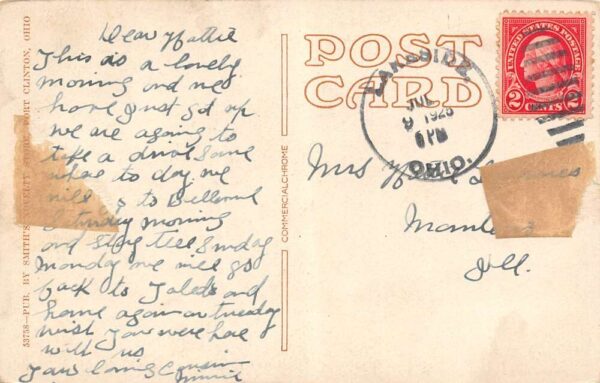 Dear Hattie
This is a lovely
morning and we
have just got up
we are agoing to
take a drive some
where to day we
will to
Saturday morning
and stay till Sunday
Monday we will go
back to Toledo and
home again on tuesday
wish you were here
with us
Your loving Cousin
Minnie
53758-PUB. BY SMITH'S PORT CLINTON, OHIO
COMMERCIALCHROME
POST
CARD
LAKESIDE
JUL
9 1928
6 PM
OHIO.
UNITED STATES POSTAGE
2 CENTS 2
Mrs
Ill.